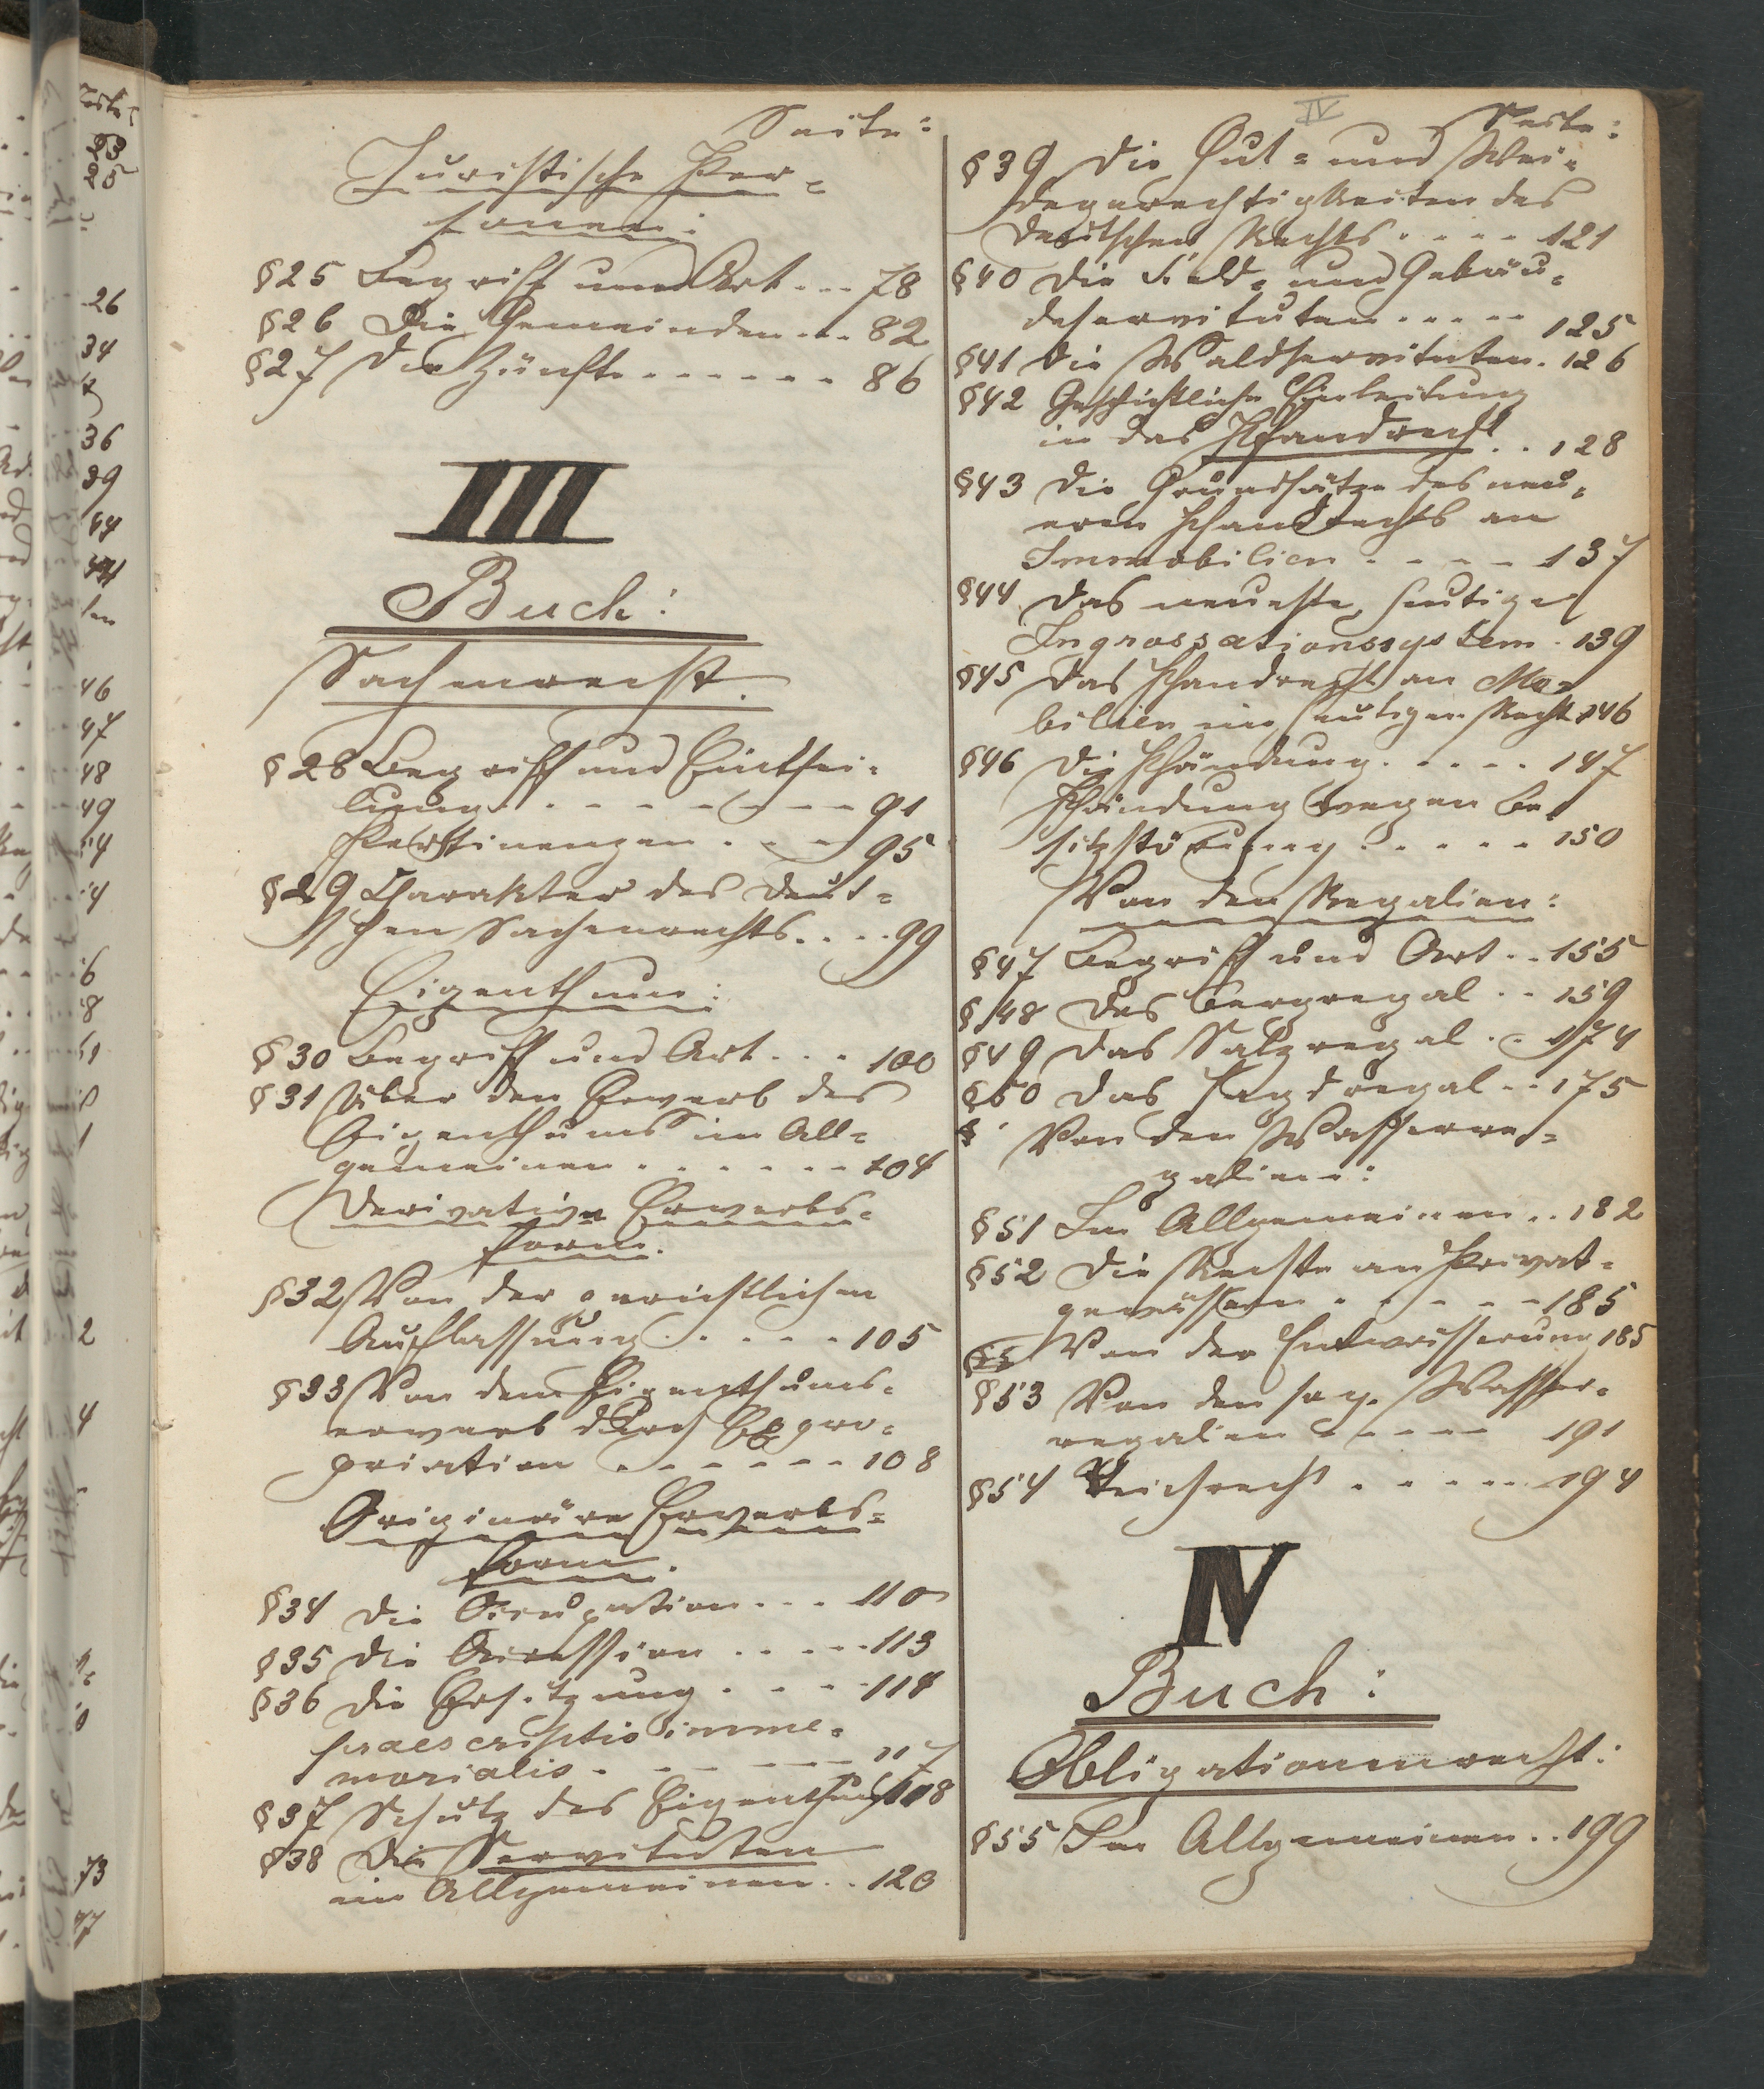 Seite:
Juristische Per-
sonen:
§25 Begriff und Art - - - 78
§26 Die Gemeinden - - - 82
§27 Die Zünfte - - - - - - 86
III
Buch:
Sachenrecht.
§28 Begriff und Einthei-
lung - - - - - - - 91
Pertinenzen - - - 95
§29 Charakter des deut-
schen Sachenrechts. . . . 99
Eigenthum:
§30 Begriff und Art . . . 100
§31 Über den Erwerb des
Eigenthums im All-
gemeinen . . . . . . 104
Derivative Erwerbs-
form.
§32 Von der gerichtlichen
Auflassung . . . . . 105
§33 Von dem Eigenthums-
erwerb durch Expro-
priation - - - - - - 108
Originäre Erwerbs-
form.
§34 Die Occupation . . . 110
§35 Die Accession . . . . . 113
§36 Die Ersitzung . . . . 114
praescriptio imme-
morialis . - - - - - 117
§37 Schutz des Eigenthums 118
§38 Die Servituten
im Allgemeinen . . 120
IV
Seite:
§39 Die Hut- und Wei-
degerechtigkeiten des
deutschen Rechts . . . . 121
§40 Die Feld- und Gebäu-
deservituten . . . . . 125
§41 Die Waldservituten . 126
§42 Geschichtliche Einleitung
in das Pfandrecht . . 128
§43 Die Grundsätze des neu-
eren Pfandrechts an
Immobilien . - - - - 137
§44 Das neueste, heutige
Ingrossationssystem . 139
§45 Das Pfandrecht an Mo-
bilien im heutigen Recht 146
§46 Die Pfändung . . . . . 147
Pfändung wegen Be-
sitzstörung . . . . . . 150
Von den Regalien:
§47 Begriff und Art . . 155
§48 Das Bergregal . . 159
§49 Das Salzregal . . 174
§50 Das Jagdregal . . 175
§ Von den Wasserre-
galien:
§51 Im Allgemeinen . . 182
§52 Die Rechte an Privat-
gewässern . . . . . 185
Von der Entwässerung 185
§53 Von den sog. Wasser-
regalien - - - - - 191
§54 Deichrecht . . . . . . 194
IV
Buch:
Obligationenrecht:
§55 Im Allgemeinen . . 199